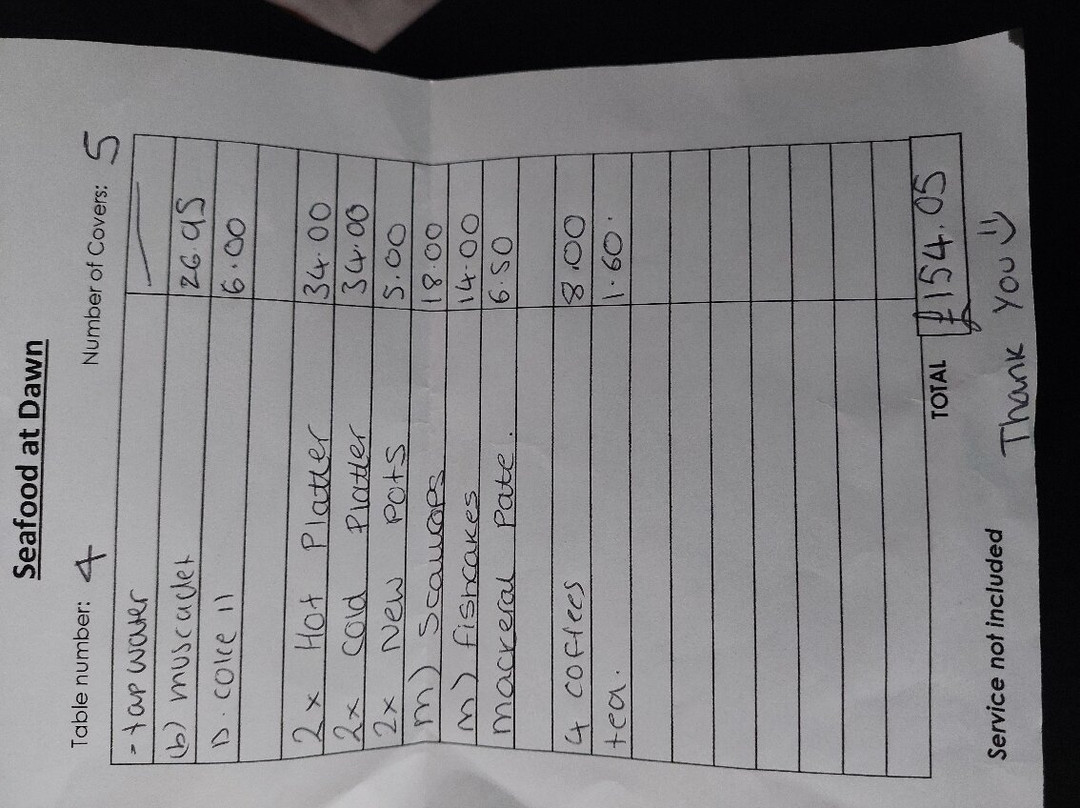 Seafood at Dawn
Table number: 4 Number of Covers: 5
- tap water —
(b) muscadet 26.95
D. coke 11 6.00
2x Hot Platter 34.00
2x Cold Platter 34.00
2x New Pots 5.00
m) scallops 18.00
m) fishcakes 14.00
mackeral Pate. 6.50
4 coffees 8.00
tea. 1.60.
TOTAL £154.05
Service not included Thank You